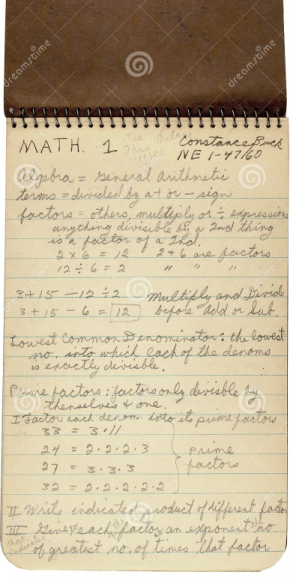 MATH. 1
Constance Buck
NE 1-4760
Algebra = General arithmetic
terms = divided by a + or - sign
factors = others, multiply or ÷ expression
anything divisible by a 2nd thing
is a factor of a 2nd.
2 x 6 = 12 2 + 6 are factors
12 ÷ 6 = 2 " " "
3 + 15 - 12 ÷ 2 Multiply and Divide
3 + 15 - 6 = 12 before add or sub.
Lowest Common Denominator: the lowest
no. into which each of the denoms
is exactly divisible.
Prime factors: factors only divisble by
themselves & one.
I Factor each denom. into its prime factors
33 = 3·11
24 = 2·2·2·3 prime
27 = 3·3·3 factors
32 = 2·2·2·2·2
II Write indicated product of different factor
III Give each factor an exponent no
of greatest no. of times that factor
dreamstime